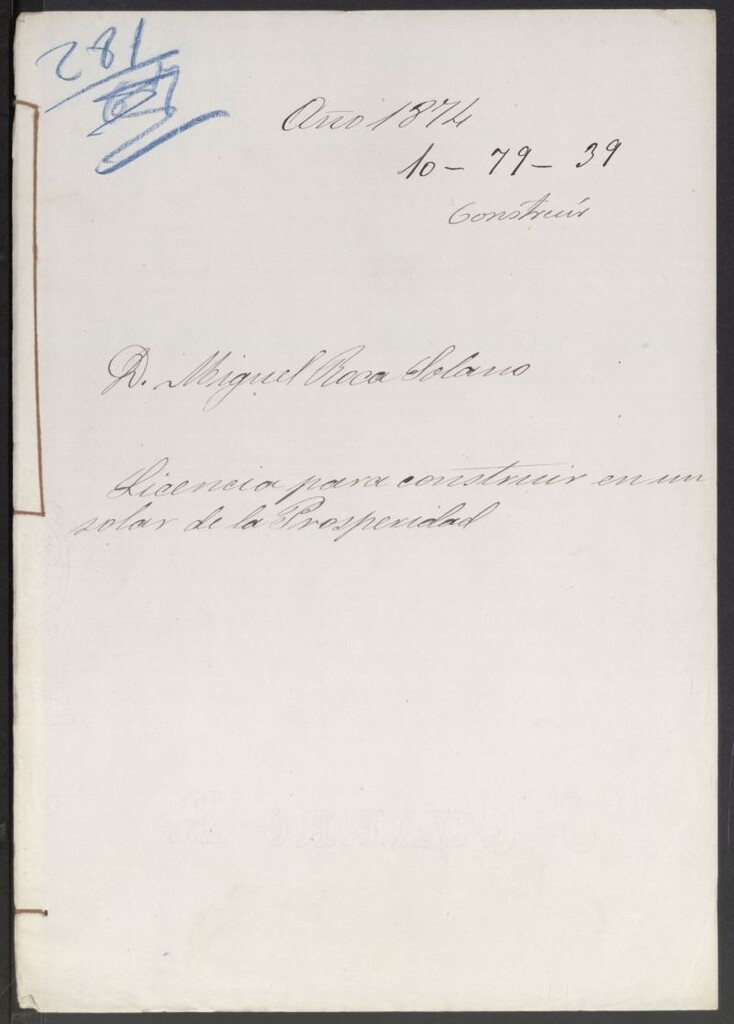 281
Año 1874
10 - 79 - 39
Construir
D. Miguel Roca Solano
Licencia para construir en un
solar de la Prosperidad